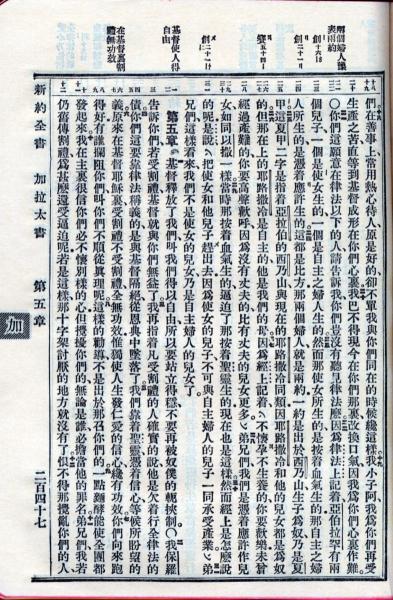 兩個婦人譬
表兩約
創十六15
創二十一2
賽五十四1
創二十一10
基督使人得
自由
在基督裏割
禮無功效
們在善事上常用熱心待人原是好的卻不單我與你們同在的時候纔這樣我小子阿我爲你們再受
生產之苦直等到基督成形在你們心裏我巴不得現今在你們那裏改換口氣因我爲你們心裏作難
〇你們這願意在律法以下的人請告訴我你們豈沒有聽見律法麼因爲律法上記着亞伯拉罕有兩
個兒子一個是使女生的一個是自主之婦人生的然而那使女所生的是按着血氣生的那自主之婦
人所生的是憑着應許生的這都是比方那兩個婦人就是兩約一約是出於西乃山生子爲奴乃是夏
甲這夏甲二字是指着亞拉伯的西乃山與現在的耶路撒冷同類因耶路撒冷和他的兒女都是爲奴
的但那在上的耶路撒冷是自主的他是我們的母因爲經上記着不懷孕不生養的你要歡樂未曾
經過產難的你要高聲歡呼因爲沒有丈夫的比有丈夫的兒女更多弟兄們我們是憑着應許作兒
女如同以撒一樣當時那按着血氣生的逼迫了那按着聖靈生的現在也是這樣然而經上是怎麼說
的呢是說把使女和他兒子趕出去因爲使女的兒子不可與自主婦人的兒子一同承受產業弟
兄們這樣看來我們不是使女的兒女乃是自主婦人的兒女了
第五章 基督釋放了我們叫我們得以自由所以要站立得穩不要再被奴僕的軛挾制〇我保羅
告訴你們若受割禮基督就與你們無益了我再指着凡受割禮的人確實的說他是欠着行全律法的
債你們這要靠律法稱義的是與基督隔絕從恩典中墜落了我們靠着聖靈憑着信心等候所盼望的
義原來在基督耶穌裏受割禮不受割禮全無功效惟獨使人生發仁愛的信心纔有功效你們向來跑
得好有誰攔阻你們叫你們不順從真理呢這樣的勸導不是出於那召你們的一點麵酵能使全團都
發起來我在主裏很信你們必不懷別樣的心但攪擾你們的無論是誰必擔當他的罪名弟兄們我若
仍舊傳割禮爲甚麼還受逼迫呢若是這樣那十字架討厭的地方就沒有了恨不得那攪亂你們的人
新約全書 加拉太書 第五章
加
二百四十七